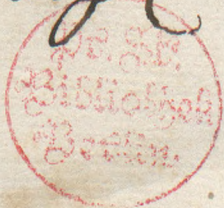 Pr. St.
Bibliothek
Berlin.